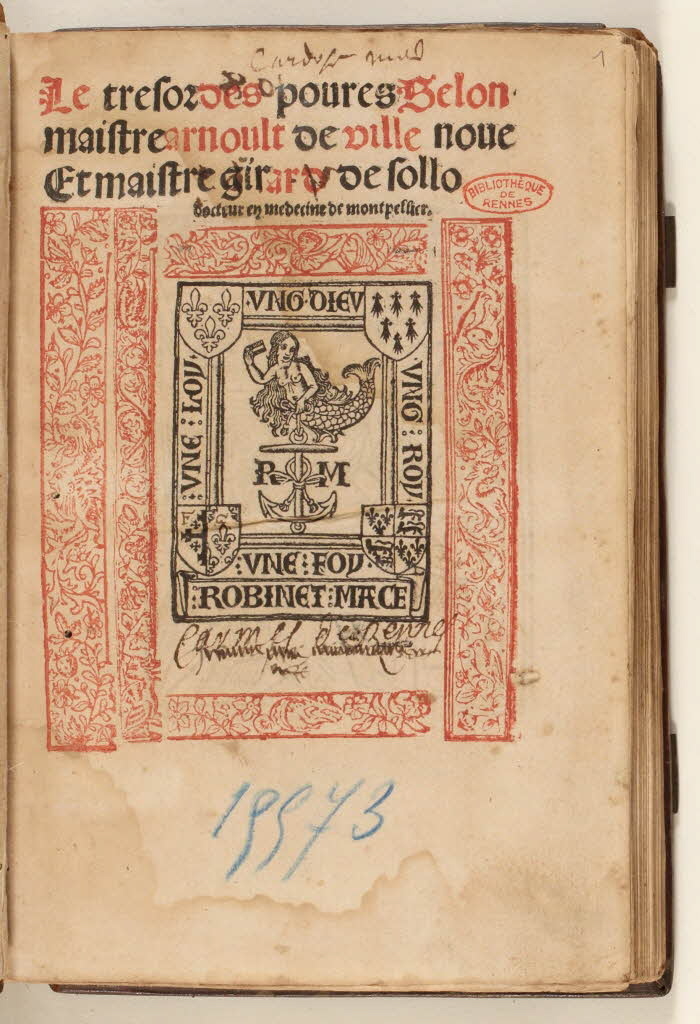 1
Le tresor des poures Selon
maistre arnoult de ville noue
Et maistre girard de sollo
docteur en medecine de montpellier.
BIBLIOTHEQUE
DE
RENNES
VNG·DIEV
VNE:LOY·
VNG:ROY·
R M
:VNE:FOY:
:ROBINET:MACE
Carmes de Rennes
19973